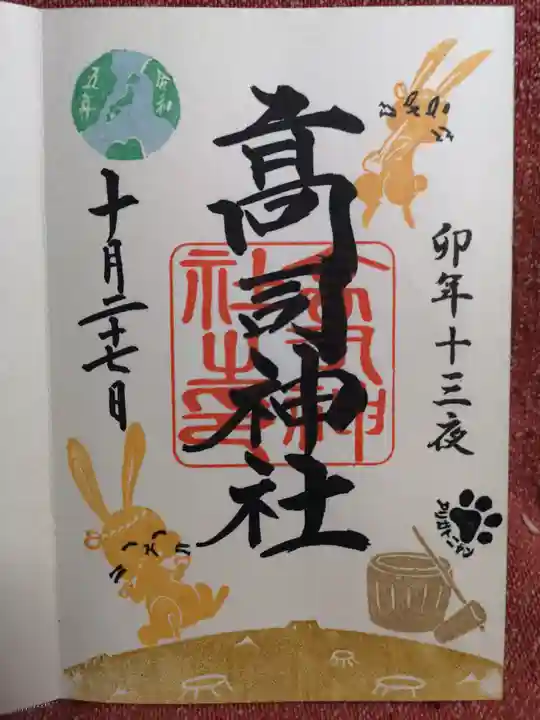 卯年十三夜
高司神社
令和
五年
十月二十七日